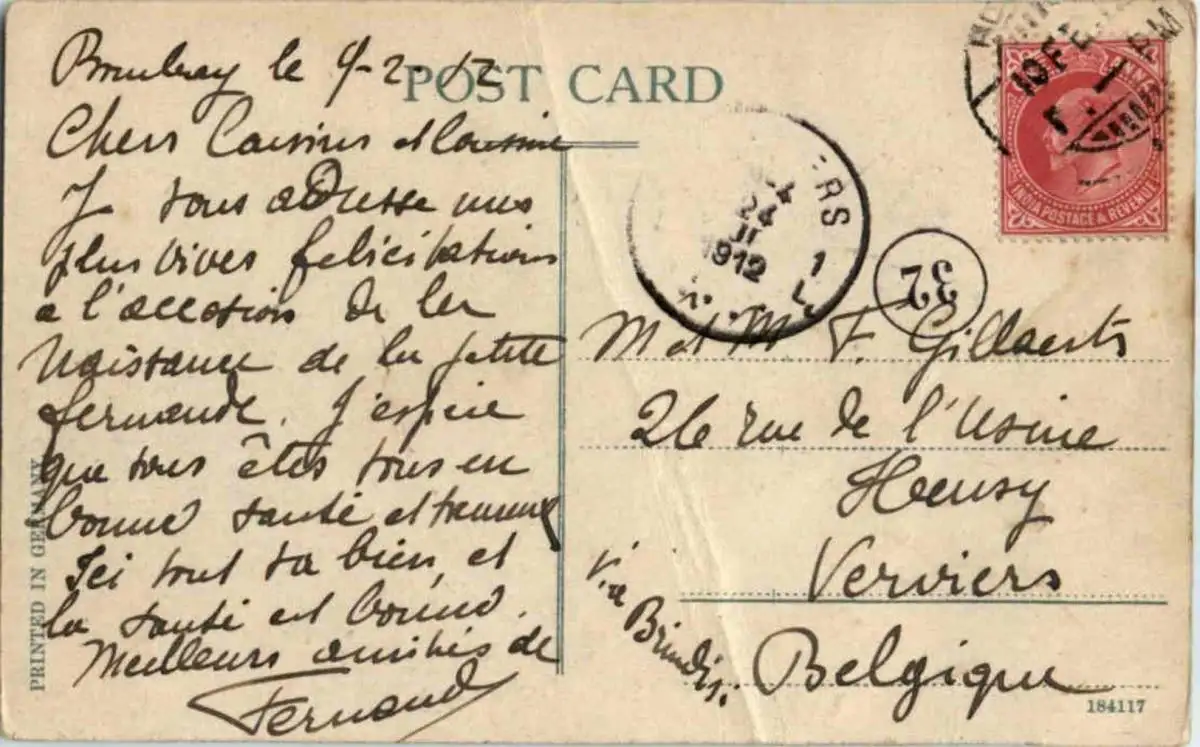 POST CARD
Bombay le 9-2-12
Chers Cousins et Cousine
Je vous adresse mes
plus vives felicitations
a l'occasion de la
Naissance de la petite
Fernande. J'espère
que vous êtes tous en
bonne santé et
Ici tout va bien, et
la santé est bonne.
Meilleurs amitiés de
Fernand
PRINTED IN GERMANY
10 FE
PM
INDIA POSTAGE & REVENUE
ERS
1
24
II
1912
32
M et M F. Gillaerts
26 rue de l'Usine
Heusy
Verviers
Via Brindisi
Belgique
184117